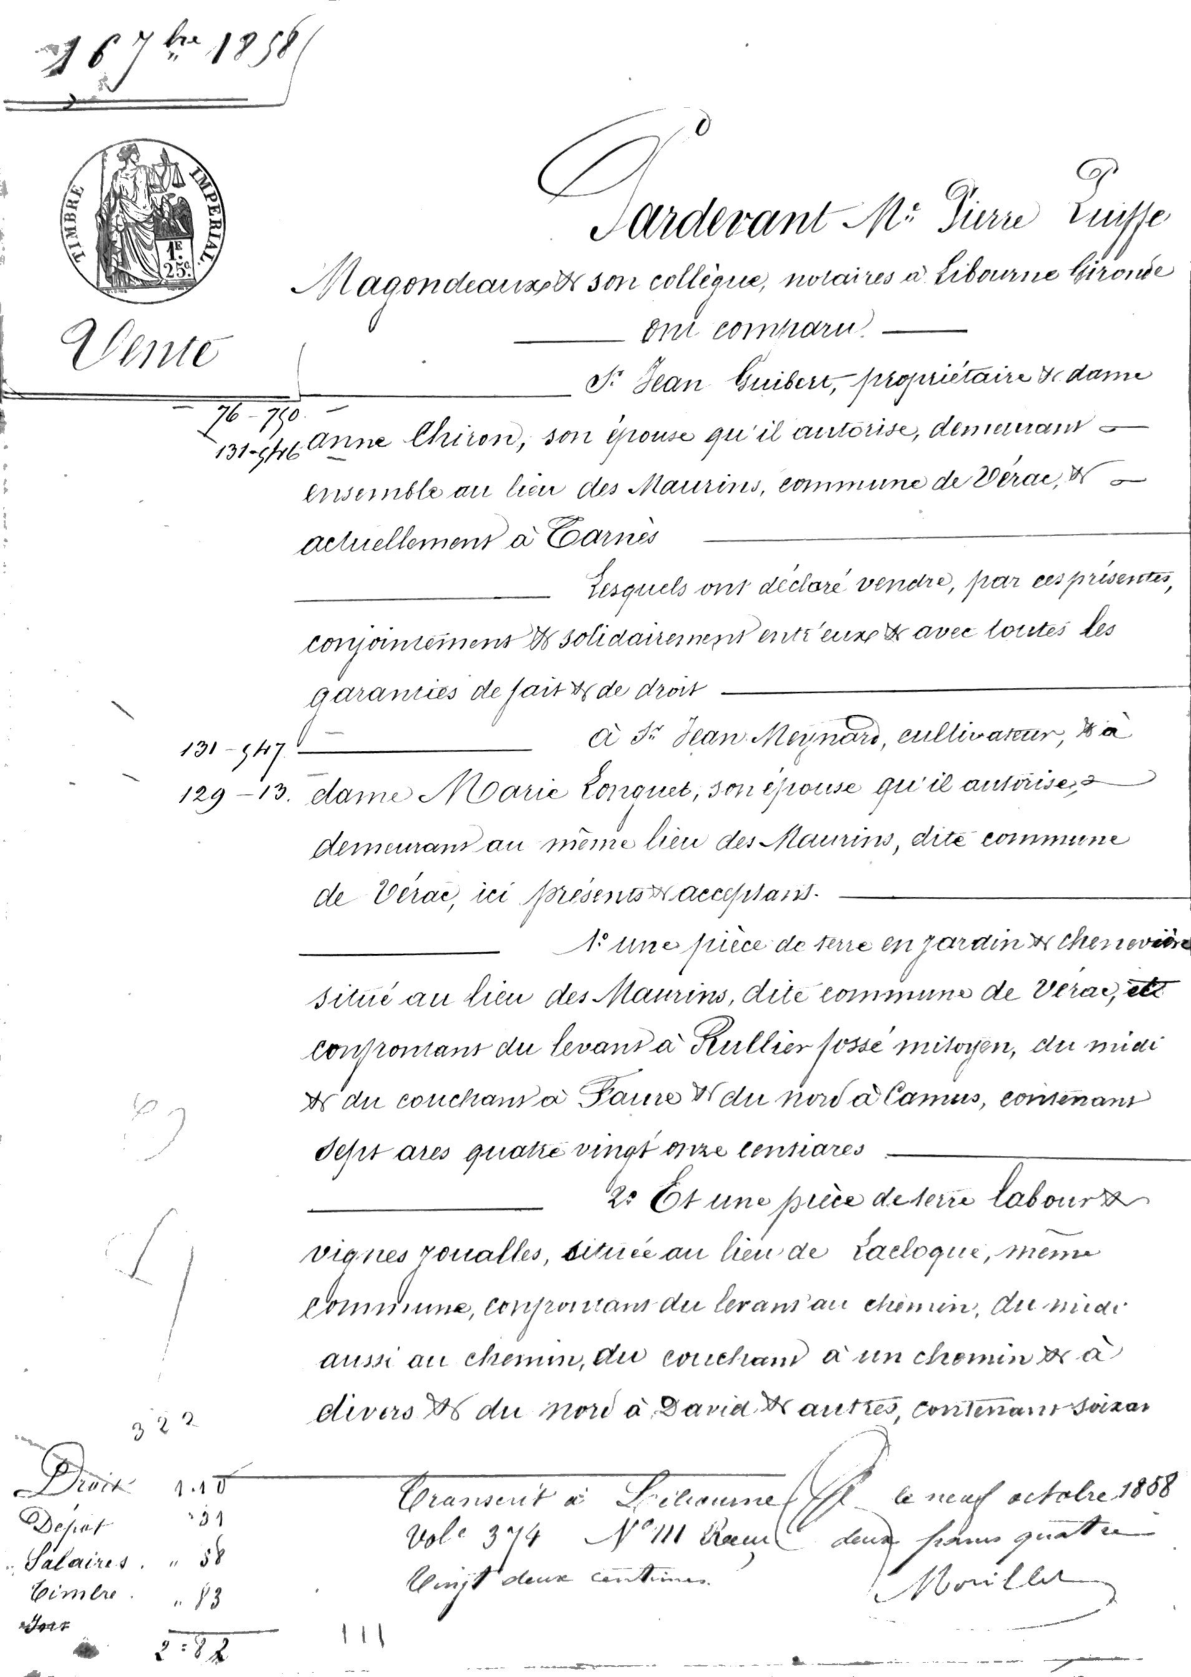 16 7bre 1858
TIMBRE IMPERIAL
1F
25c
Vente
Pardevant Me Pierre
Magondeaux & son collègue, notaires à Libourne Gironde
ont comparu.
Sr Jean Guibert, propriétaire & dame
76-750
131-546
anne Chiron, son épouse qu'il autorise, demeurant
ensemble au lieu des Maurins, commune de Vérac, &
actuellement à Tarnès
Lesquels ont déclaré vendre, par ces présentes,
conjointement & solidairement entr'eux & avec toutes les
garanties de fait & de droit
131-547
à Sr Jean Meynard, cultivateur, & à
129-13.
dame Marie Longuet, son épouse qu'il autorise,
demeurant au même lieu des Maurins, dite commune
de Vérac, ici présents & acceptans.
1º une pièce de terre en jardin & chenevière
situé au lieu des Maurins, dite commune de Vérac, et
confrontant du levant à Rullier fossé mitoyen, du midi
& du couchant à Faure & du nord à Camus, contenant
sept ares quatre vingt onze centiares
2º Et une pièce de terre labour &
vignes joualles, située au lieu de Lacloque, même
commune, confrontant du levant au chemin, du midi
aussi au chemin, du couchant à un chemin & à
divers & du nord à David & autres, contenant soixan
322
Droit 1.10
Dépot 31
Salaires. " 58
Timbre. " 83
2=82
Transcrit à Libourne le neuf octobre 1858
Vole 374 Nº 111 Reçu deux francs quatre
Vingt deux centimes.
111